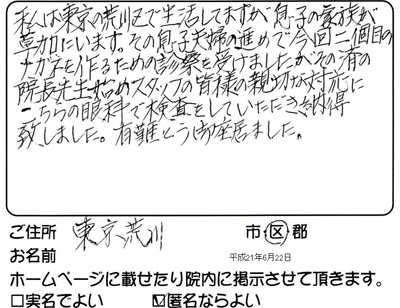 私は東京の荒川区で生活してますが息子の家族が
草加にいます。その息子夫婦の進めで今回二個目の
メガネを作るための診察を受けましたがその済の
院長先生始めスタッフの皆様の親切な対応に
こちらの眼科で検査をしていただき納得
致しました。有難とう御座居ました。
ご住所 東京荒川 市・区・郡
お名前 平成21年6月22日
ホームページに載せたり院内に掲示させて頂きます。
□実名でよい ☑匿名ならよい